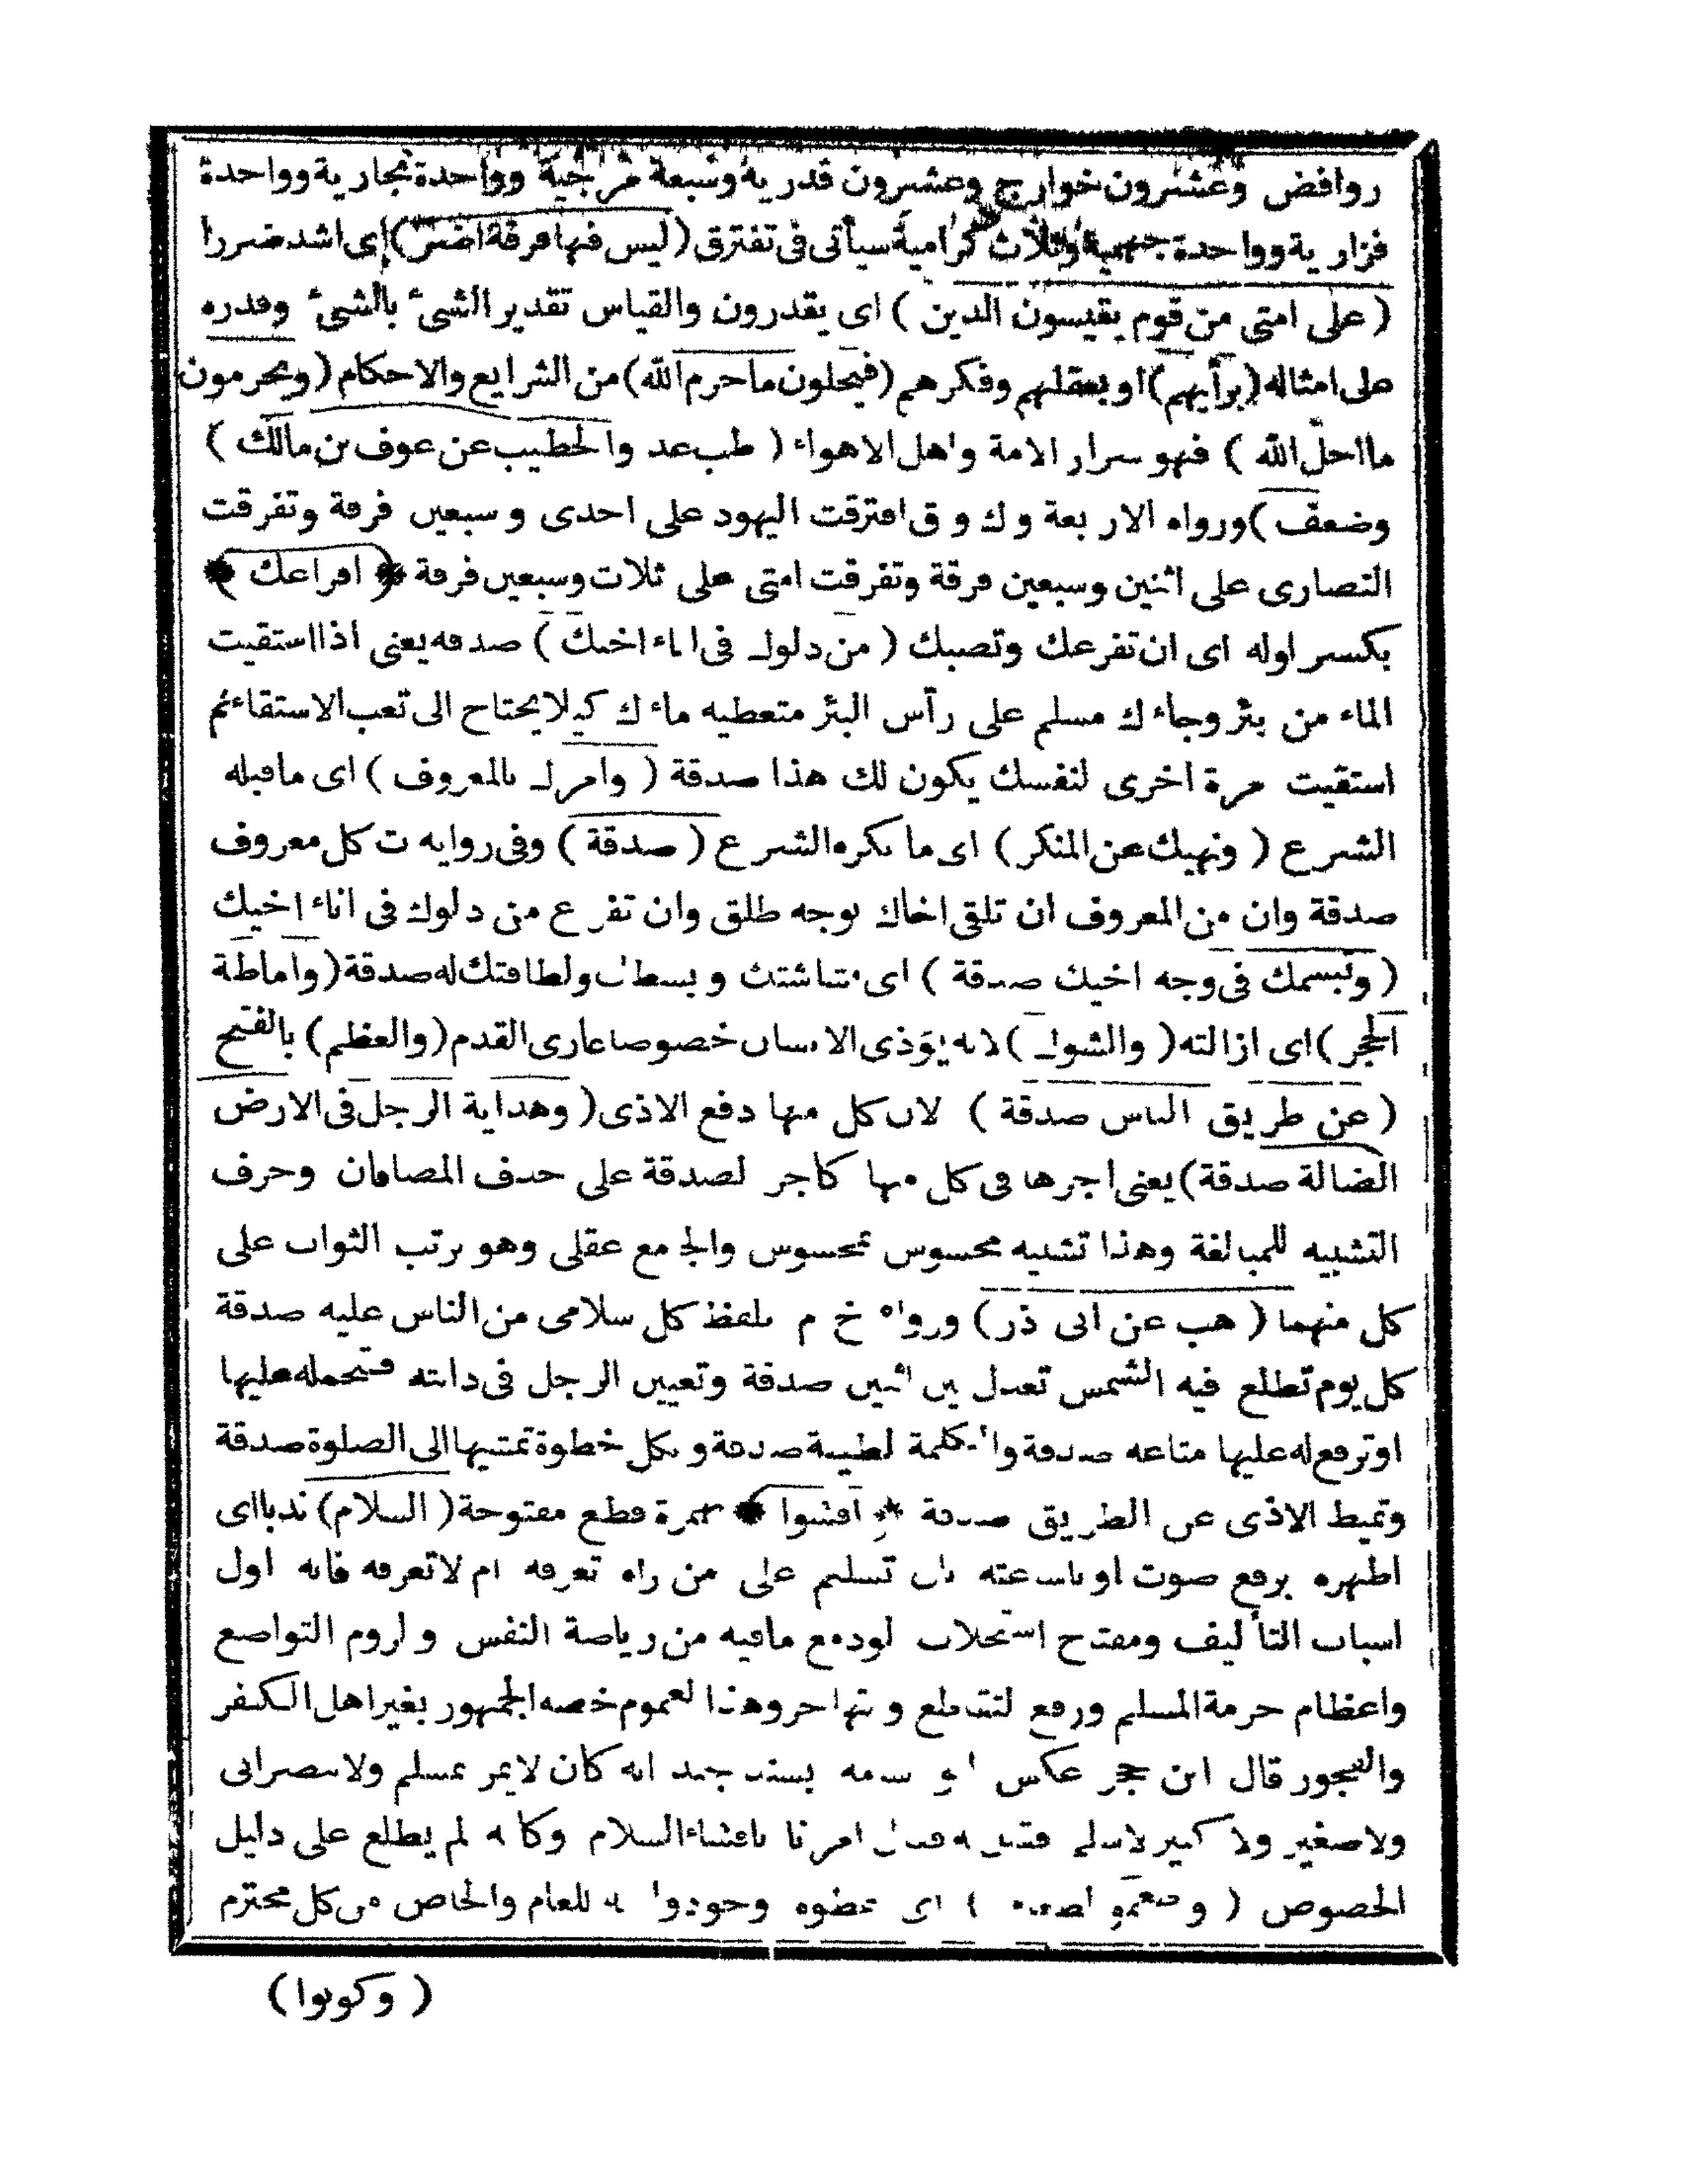 روافض وعشرون خوارج وعشرون قدرية وسبعة مرجئية وواحدة نجارية وواحدة
فزارية وواحدة جهمية وثلاث كرامية سيأتى فى تفترق (ليس فيها فرقة اضر) اى اشد ضررا
(على امتى من قوم يقيسون الدين) اى يقدرون والقياس تقدير الشئ بالشئ وقدره
على امثاله (برأيهم) او بعقلهم وفكرهم (فيحلون ما حرم الله) من الشرايع والاحكام (ويحرمون
ما احل الله) فهو سرار الامة واهل الاهواء (طب عد والخطيب عن عوف بن مالك)
وضعف) ورواه الاربعة وك وق افترقت اليهود على احدى وسبعين فرقة وتفرقت
النصارى على اثنين وسبعين فرقة وتفرقت امتى على ثلاث وسبعين فرقة ﴿افراغك﴾
بكسر اوله اى ان تفرغك وتصبك (من دلوك فى اناء اخيك) صدقه يعنى اذا استقيت
الماء من بئر وجاءك مسلم على رأس البئر متعطيه ماءك كيلا يحتاج الى تعب الاستقاء ثم
استقيت مرة اخرى لنفسك يكون لك هذا صدقة (وامرك بالمعروف) اى ما قبله
الشرع (ونهيك عن المنكر) اى ما يكره الشرع (صدقة) وفى روايه ت كل معروف
صدقة وان من المعروف ان تلقى اخاك بوجه طلق وان تفرغ من دلوك فى اناء اخيك
(وتبسمك فى وجه اخيك صدقة) اى بشاشتك وبسطك ولطافتك له صدقة (واماطة
الحجر) اى ازالته (والشوك) لانه يؤذى الانسان خصوصا عارى القدم (والعظم) بالفتح
(عن طريق الناس صدقة) لان كل منها دفع الاذى (وهداية الرجل فى الارض
الضالة صدقة) يعنى اجرها فى كل منها كاجر لصدقة على حذف المضافان وحرف
التشبيه للمبالغة وهذا تشبيه محسوس بمحسوس والجامع عقلى وهو ترتب الثواب على
كل منهما (هب عن ابى ذر) ورواه خ م بلفظ كل سلامى من الناس عليه صدقة
كل يوم تطلع فيه الشمس تعدل بين اثنين صدقة وتعيين الرجل فى دابته فتحمله عليها
او ترفع له عليها متاعه صدقة والكلمة لطيبة صدقة وبكل خطوة تمشيها الى الصلوة صدقة
وتميط الاذى عن الطريق صدقة ﴿افشوا﴾ بهمزة قطع مفتوحة (السلام) ندبا اى
اظهره برفع صوت او باشاعته بان تسلم على من راه تعرفه ام لا تعرفه فانه اول
اسباب التأليف ومفتاح استجلاب لود مع ما فيه من رياضة النفس ولزوم التواضع
واعظام حرمة المسلم ورفع لتقاطع وتهاجر وهذا لعموم خصه الجمهور بغير اهل الكفر
والفجور قال ابن حجر عكس بسند جيد انه كان لا يمر بمسلم ولا نصرانى
ولا صغير ولا كبير لا سلم فقيل له فقال امرنا بافشاء السلام وكانه لم يطلع على دليل
الخصوص ( اى وجودوا به للعام والخاص من كل محترم
(وكونوا)